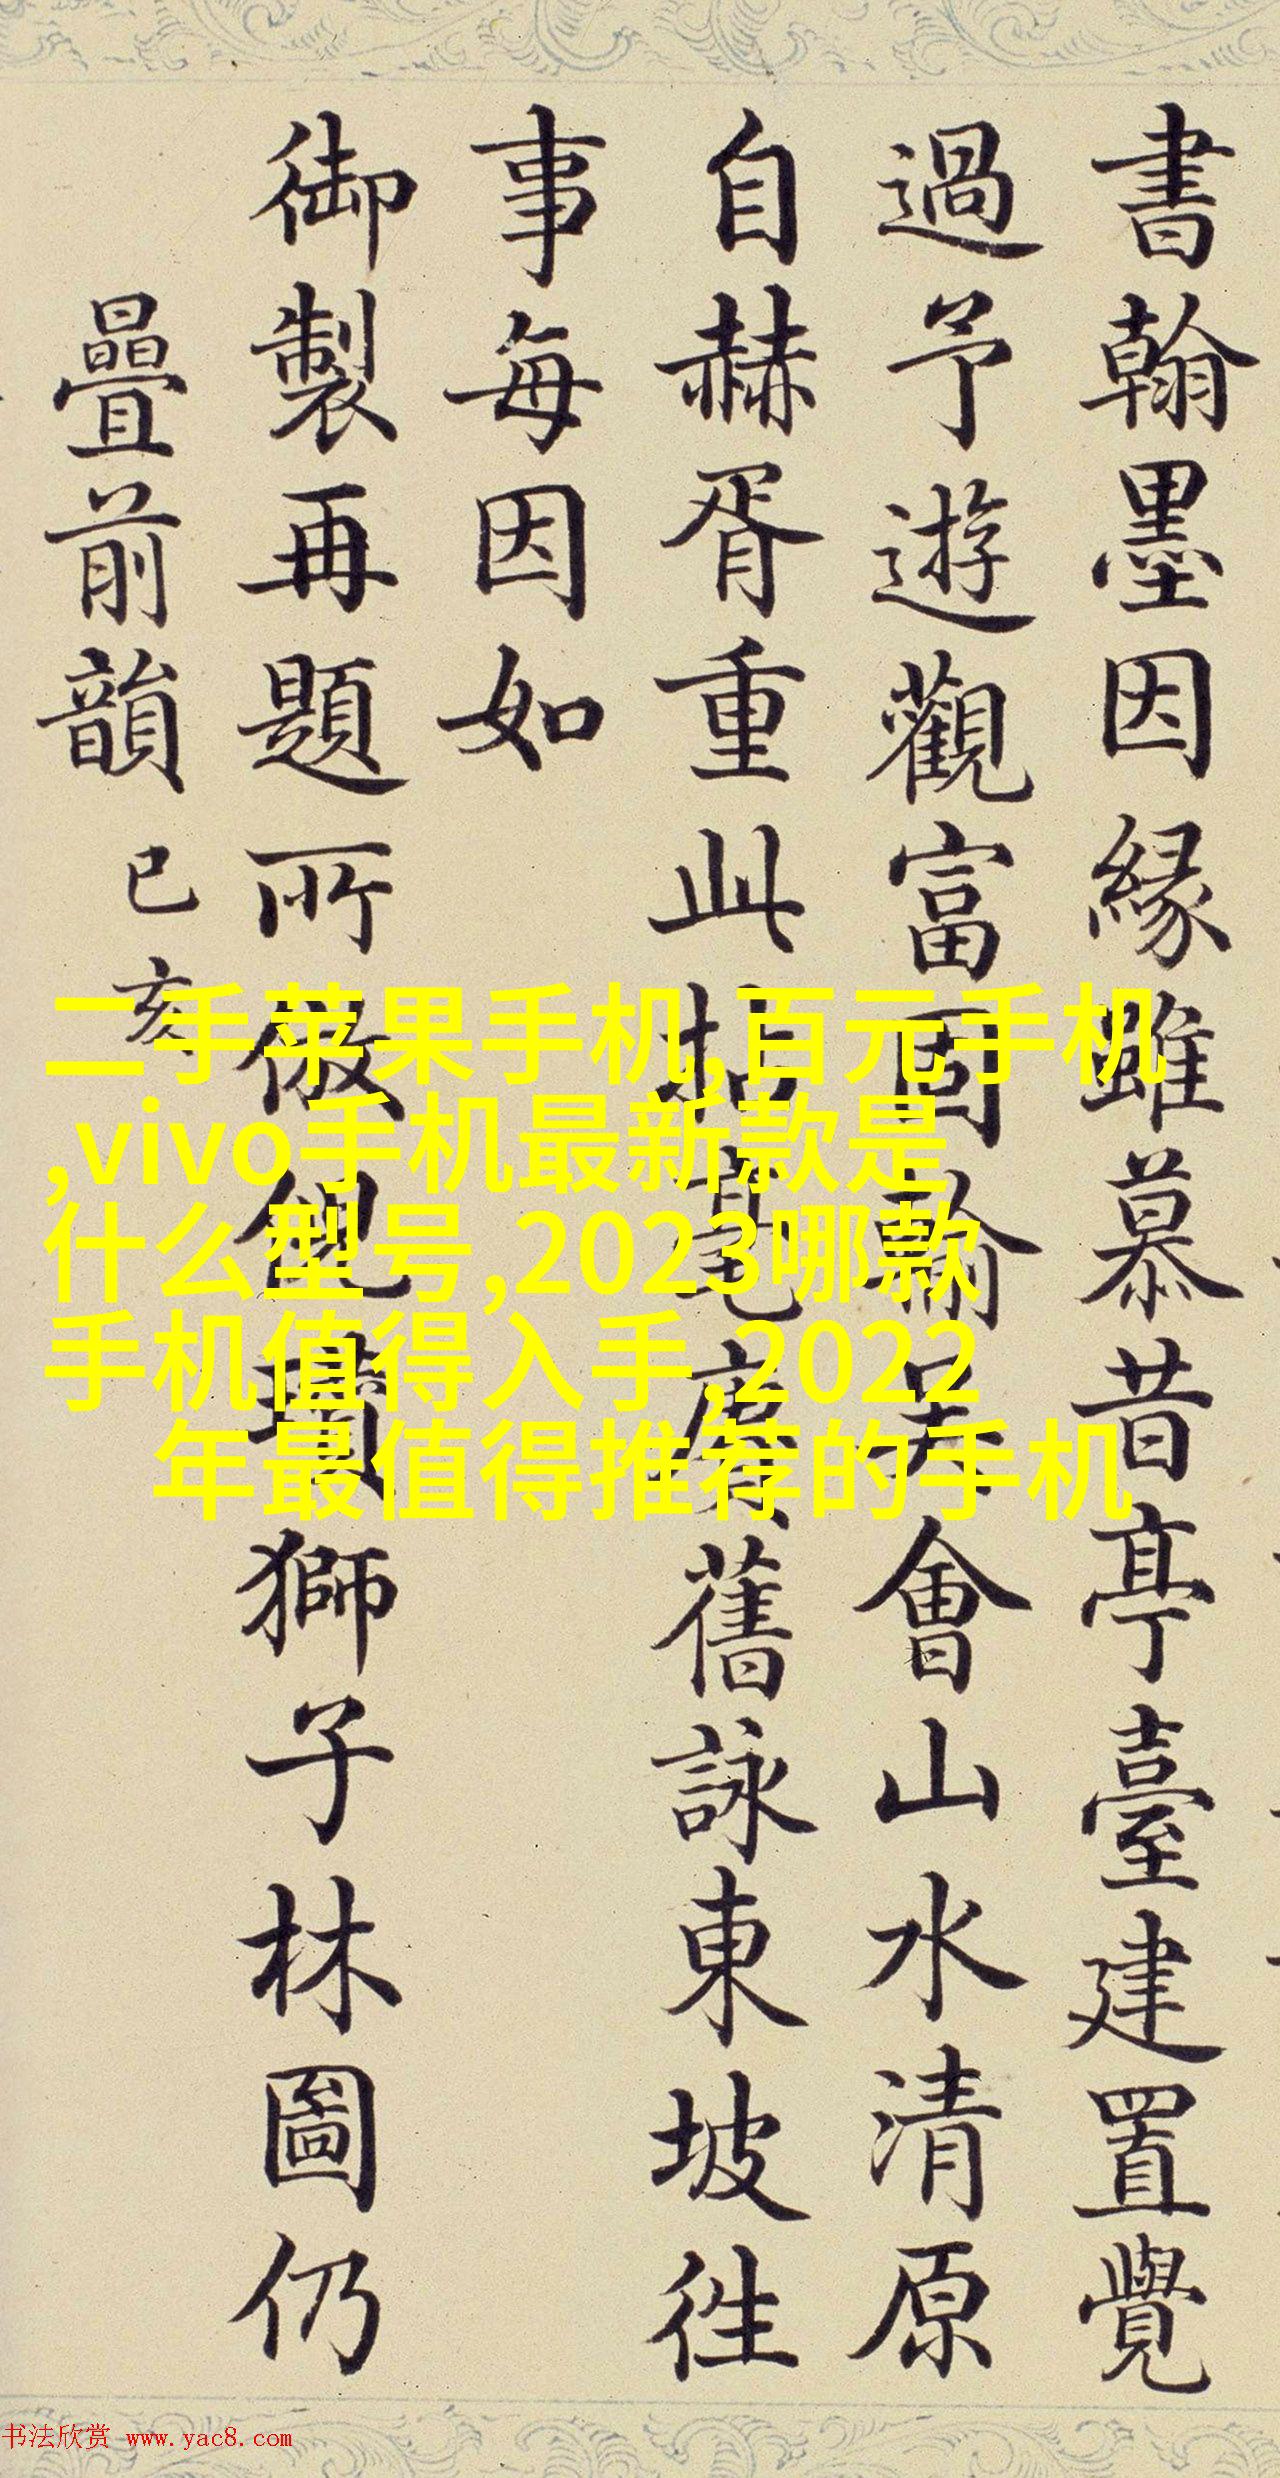 書翰墨因緣雖慕昔亭臺建置覺
過予遊觀富固輸吳會山水清原
自赫胥重此拈毫賡舊詠東坡徃
事每因如
御製再題所倣倪瓚獅子林圖仍
疊前韻 己亥
二手苹果手机,百元手机
,vivo手机最新款是
什么型号,2023哪款
手机值得入手,2022
年最值得推荐的手机
书法欣赏 www.yac8.com